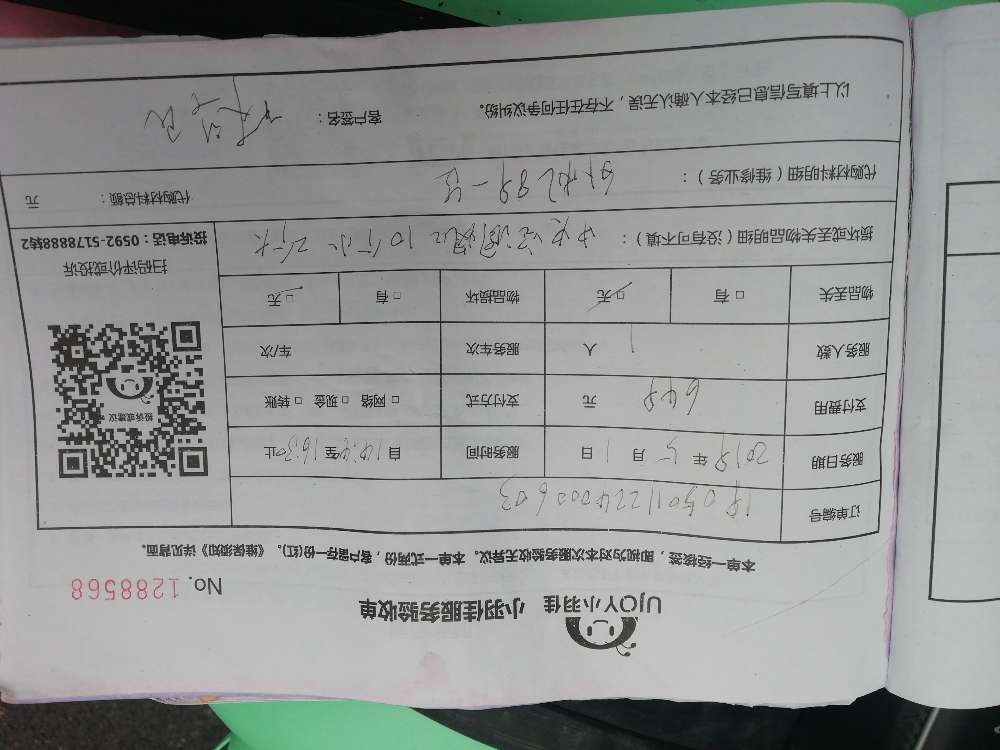 UJOY小羽佳 小羽佳服务验收单
No. 1288568
本单一经核签，即视为对本次服务验收无异议。本单一式两份，客户留存一份(红)。《维保须知》详见背面。
订单编号
服务日期 2019年5月1日 服务时间 自 至16:30止
支付费用 元 支付方式 □网络 □现金 □转账
服务人数 1 人 服务车次 车/次
物品丢失 □有 □无 物品损坏 □有 □无
损坏或丢失物品明细（没有可不填）：中央空调
代购材料明细（维修业务）：外机 一台
代购材料总额： 元
以上填写信息已经本人确认无误，不存在任何争议纠纷。 客户签名：
投诉或建议
扫码评价或投诉
投诉电话：0592-5178888转2